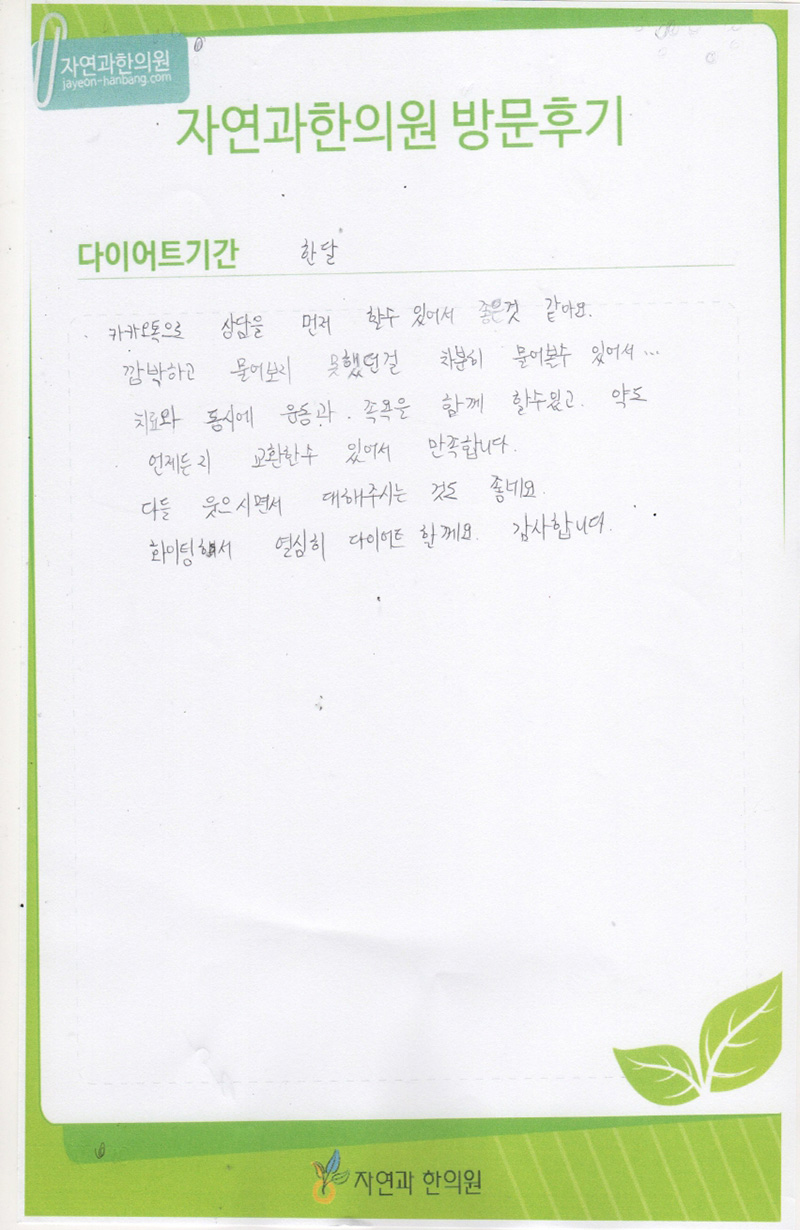 자연과한의원
jayeon-hanbang.com
자연과한의원 방문후기
다이어트기간 한달
카카오톡으로 상담을 먼저 할수 있어서 좋은것 같아요.
깜박하고 물어보리 못했던걸 차분히 물어볼수 있어서...
치료와 동시에 운동과. 족욕은 함께 할수있고. 약도
언제든지 교환할수 있어서 만족합니다.
다들 웃으시면서 대해주시는 것도 좋네요.
화이팅해서 열심히 다이어트 할께요. 감사합니다.
자연과 한의원